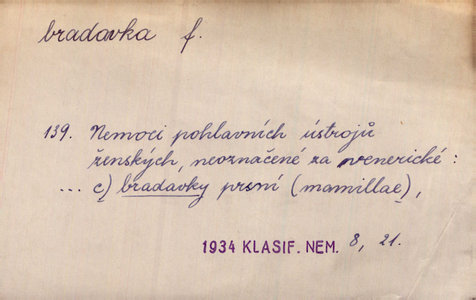 bradavka f.
139. Nemoci pohlavních ústrojů
ženských, neoznačené za venerické:
... c) bradavky prsní (mamillae),
1934 KLASIF. NEM. 8, 21.